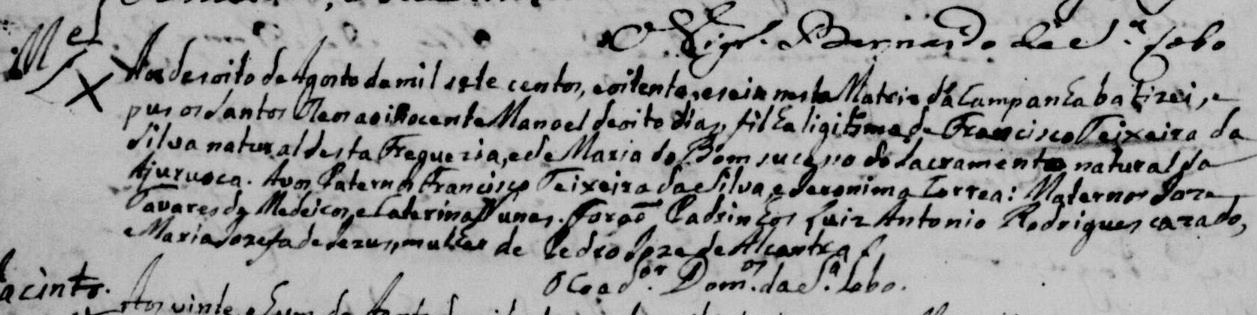 O Vigr.º Bernardo da S.ª Lobo
Mel
Aos desoito de Agosto de mil sete centos, e oitenta, e seis nesta Matriz da Campanha batizei, e
pus os Santos Oleos a inocente Manoel de oito dias, filha ligitima de Francisco Teixeira da
Silva natural desta Freguezia, e de Maria do Bom sucesso do Sacramento natural da
Ajuruoca. Avos Paternos Francisco Teixeira da Silva, e Jeronima Correa: Maternos Joze
Tavares de Medeiros, e Caterina Nunes. Foraõ Padrinhos Luiz Antonio Rodrigues cazado,
e Maria Jozefa de Jezus, mulher de Pedro Joze de Alcantra
O Coad.or Dom.os da S.ª Lobo.
Jacinto.
Aos vinte, e hum de